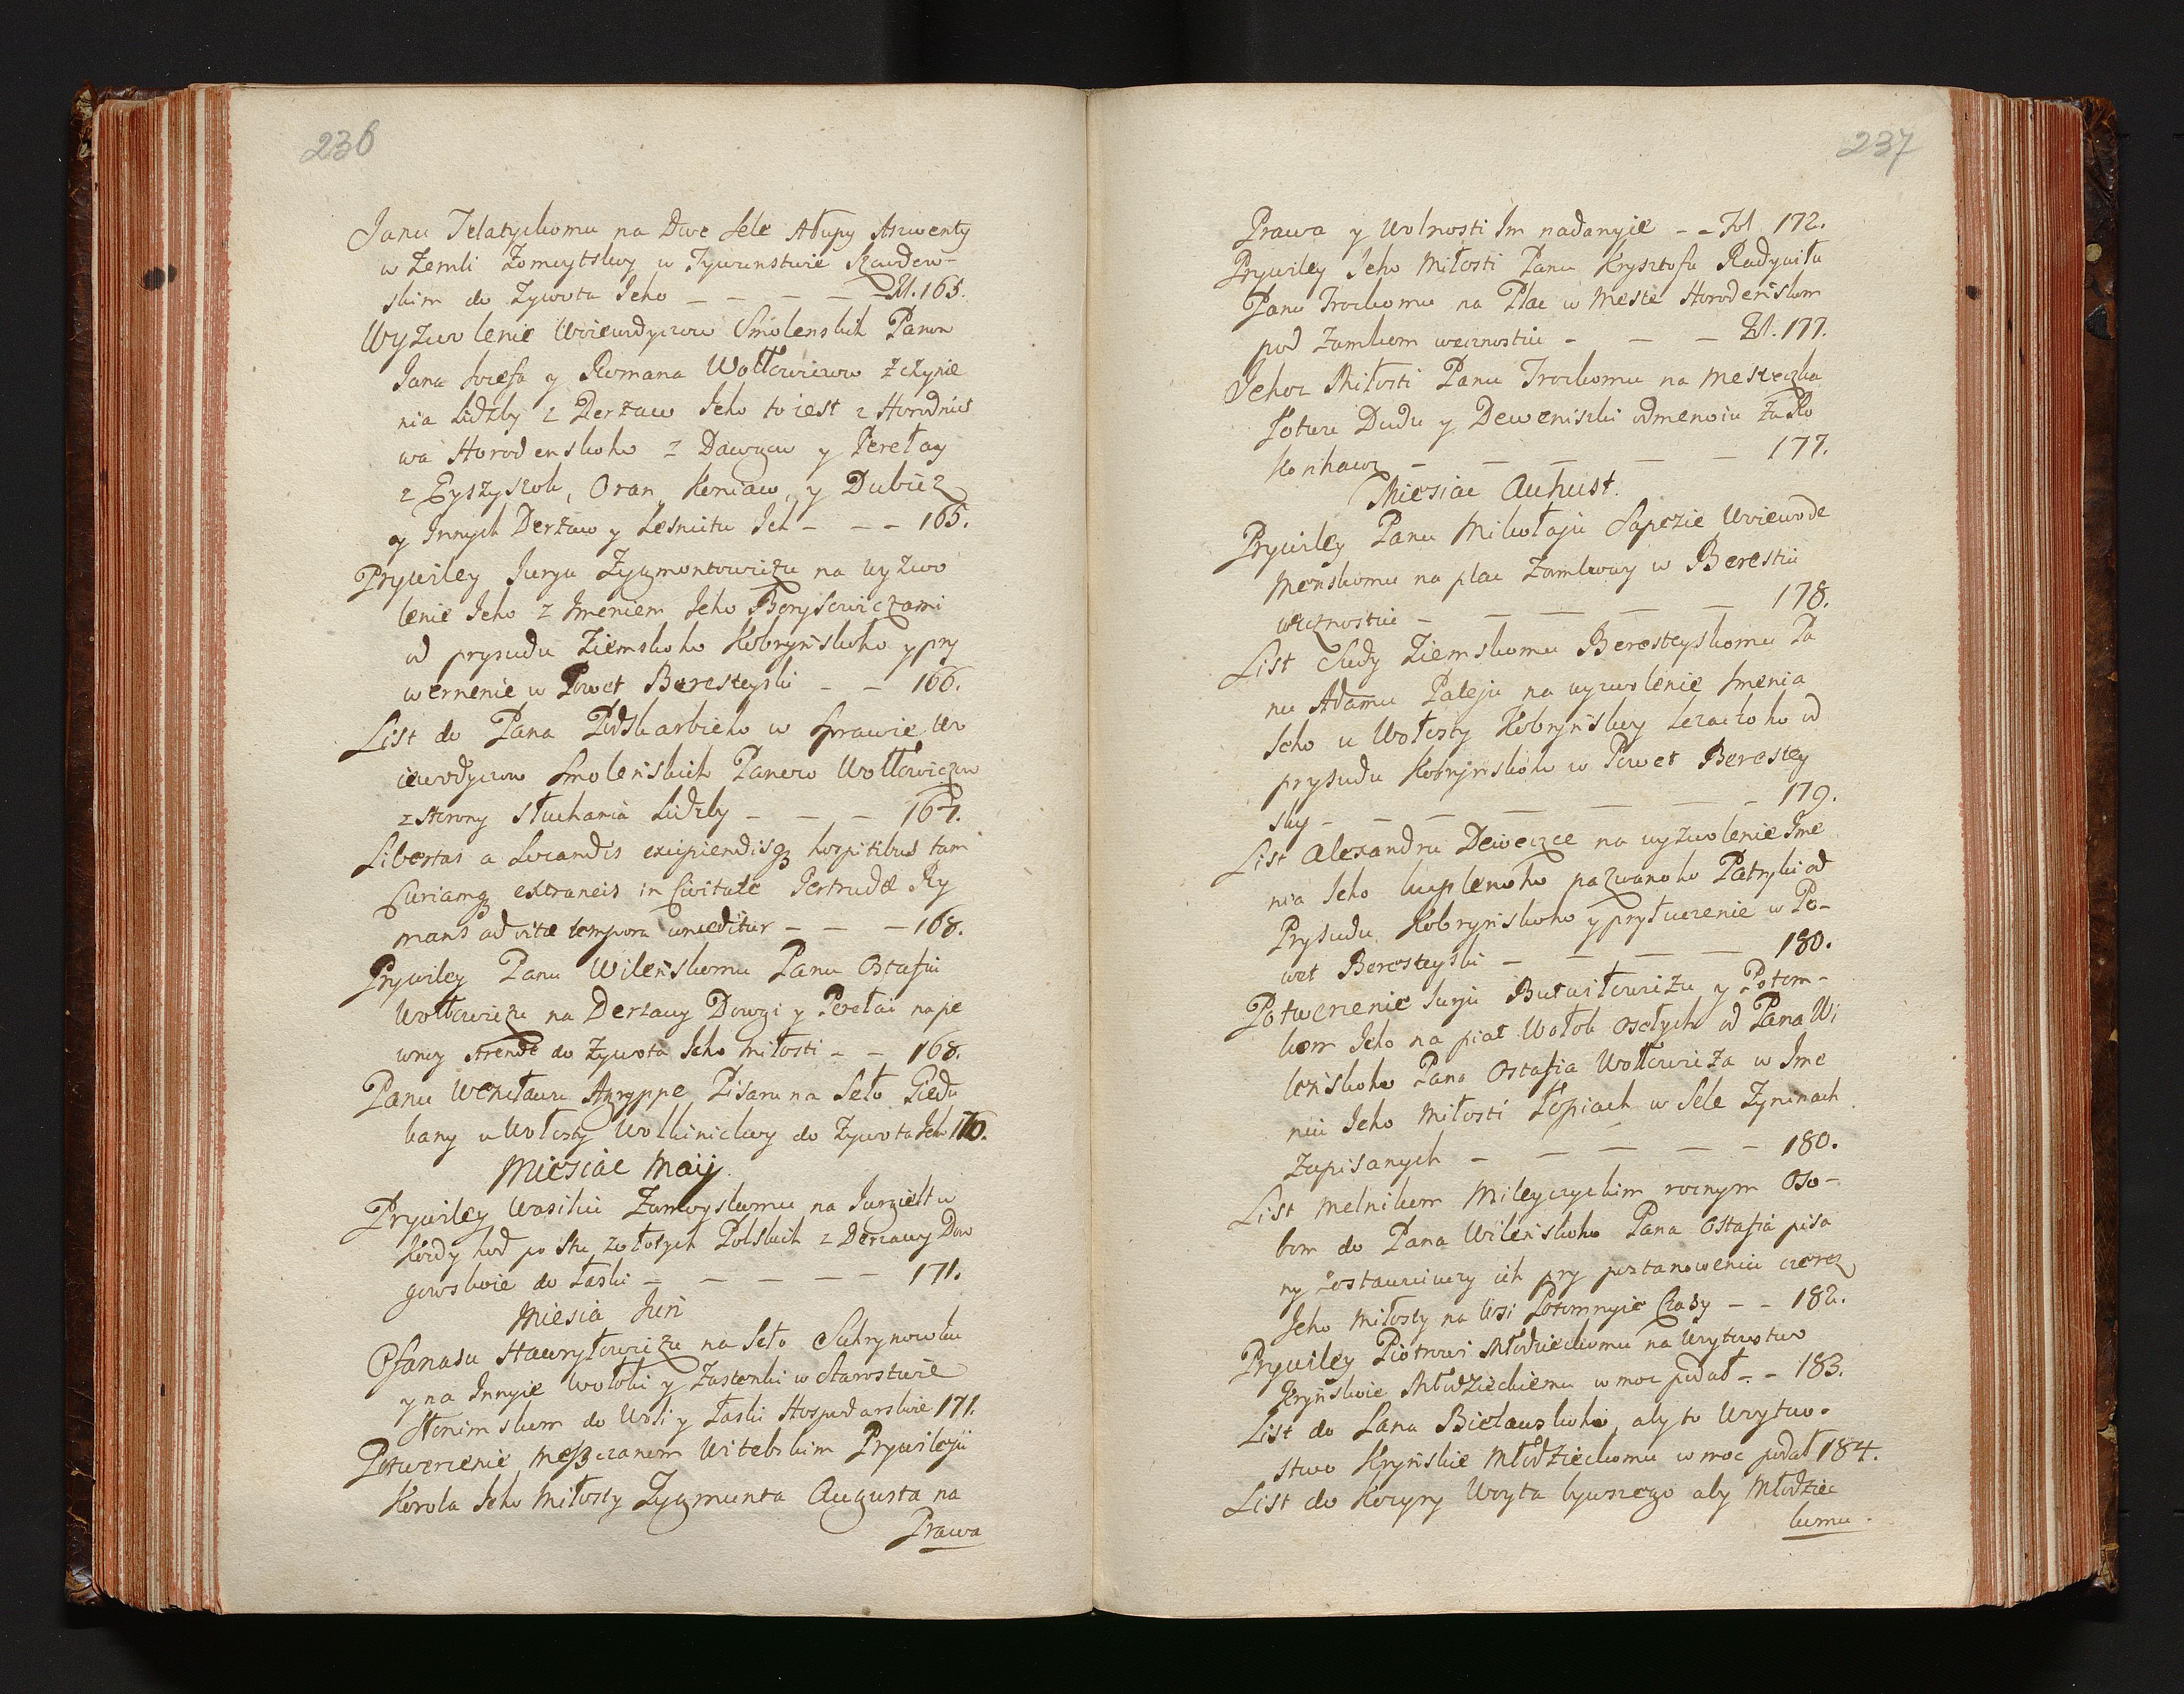 236
Janu Telatyckomu na Dwe Sele Atupy Aszwenty
w Zemli Zomoytskoy w Tywunstwie Szawdow-
skim do Zywota Jeho - - - - - Fol. 165.
Wyzwolenie Woiewodyczow Smolenskich Panow
Jana Jozefa y Romana Wołłowiczow z czynie
nia Liczby z Derzaw Jeho to iest z Horodnicz
wa Horodenskoho z Dowgow y Perełay
z Eyszyszok, Oran, Koniaw, y Dubicz
y Innych Derzaw y Lesnictw Ich - - - 165.
Prywiley Juryu Zygmontowiczu na wyzwo
lenie Jeho z Imeniem Jeho Borysowiczami
od prysudu Ziemskoho Kobrynskoho y pry
wernenie w Powet Beresteyski - - 166.
List do Pana Podskarbieho w sprawie Wo
iewodyczow Smoleńskich Panow Wołłowiczow
z strony słuchania Liczby - - - 167.
Libertas a Locandis excipiendisq hospitibus tam
Curiamq extraneis in Civitate Gertrudæ Ry
mans ad vitæ tempora conceditur - - - 168.
Prywiley Panu Wileńskomu Panu Ostafiu
Wołłowiczu na Derzawy Dowgi y Perełai na pe
wney Arende do Zywota Jeho Miłosti - - 168.
Panu Wencławu Agryppe Pisaru na Seło Giedu
kany u Wołosty Wolkinickoy do Zywota Jeho 170.
Miesiac Maij
Prywiley Wasiliu Zamoyskomu na Jurgieltu
Kozdy hod po Sto zołotych Polskich z Derzawy Dow
gowskoie do Łaski - - - - - 171.
Miesia Juń
Ofanasu Hawryłowiczu na Seło Sukrynowsku
y na Innyie Wołoki y Zastenki w Starostwie
Słonimskom do Woli y Łaski Hospodarskoie 171.
Potwerzenie Meszczanom Witebskim Prywileju
Korola Jeho Miłosty Zygmunta Augusta na
Prawa
237
Prawa y Wolnosti Im nadanyie - - Fol 172.
Prywiley Jeho Miłosti Panu Krysztofu Radywiłu
Panu Trockomu na Plac w Meste Horodeńskom
pod Zamkom wecznostiu - - - Fol. 177.
Jehoz Miłosti Panu Trockomu na Mesteczka
Koture Dudu y Deweniszki odmenoiu za Ro
konhawz - - - - - 177.
Miesiac Auhust.
Prywiley Panu Mikołaju Sapezie Woiewode
Menskomu na plac Zamkowy w Berestiu
wecznostiu - - - - - 178.
List Sudy Ziemskomu Beresteyskomu Pa
nu Adamu Pateju na wyzwolenie Imenia
Jeho u Wołosty Kobryńskoy Lezaczoho od
prysudu Kobrynskoho w Powet Berestey
sky - - - - - 179.
List Alexandru Deweczce na wyzwolenie Ime
nia Jeho kuplenoho nazwanoho Patryki od
Prysudu Kobrynskoho y pryłuczenie w Po-
wet Beresteyski - - - - 180.
Potwerzenie Juryu Butwiłowiczu y Potom-
kom Jeho na piat Wołok osełych od Pana Wi
lenskoho Pana Ostafia Wołłowicza w Ime
niu Jeho Miłosti Łopiach w Sele Zyninach
Zapisanych - - - - - 180.
List Melnikom Mileyczyckim roznym Oso-
bom do Pana Wileńskoho Pana Ostafia pisa
ny zostawuiuczy ich pry postanowleniu czerez
Jeho Miłosty na Wsi Potomnyie Czasy - - 182.
Prywiley Piotrowi Młodzieckomu na Woytowstwo
Kryńskoie Młodzieckiemu w moc podał - - 183.
List do Pana Bieławskoho, aby to Woytow-
stwo Kryńskie Młodzieckomu w moc podał 184.
List do Kozyry Woyta bywszego aby Młodziec
komu.